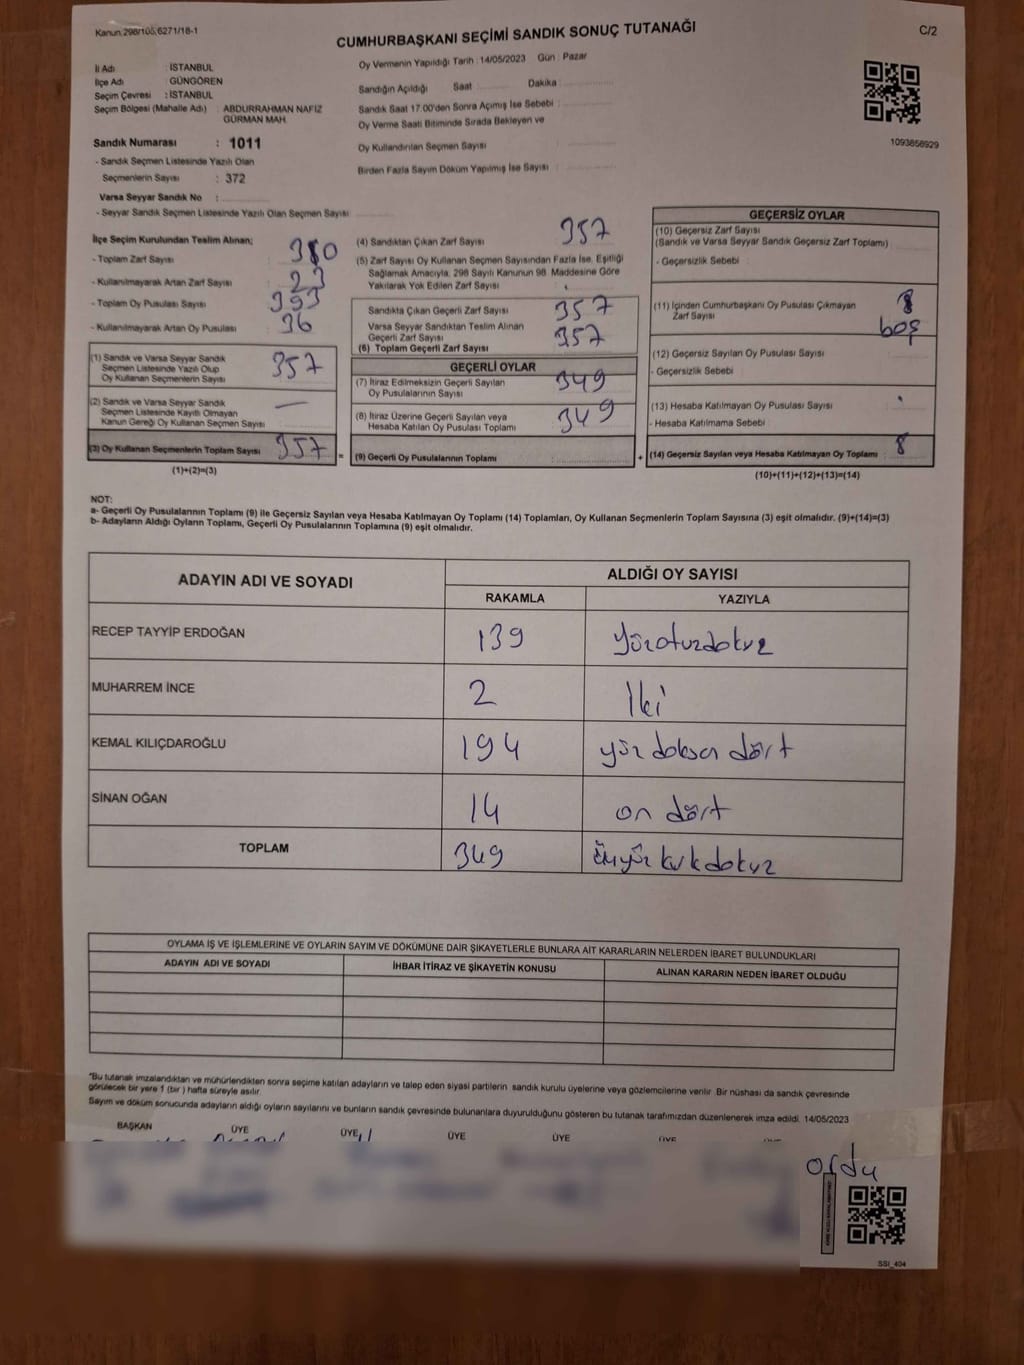 Kanun 298/105,6271/18-1
CUMHURBAŞKANI SEÇİMİ SANDIK SONUÇ TUTANAĞI
C/2
İl Adı : İSTANBUL
İlçe Adı : GÜNGÖREN
Seçim Çevresi : İSTANBUL
Seçim Bölgesi (Mahalle Adı) : ABDURRAHMAN NAFIZ
GÜRMAN MAH.
Sandık Numarası : 1011
- Sandık Seçmen Listesinde Yazılı Olan
Seçmenlerin Sayısı : 372
Varsa Seyyar Sandık No :
- Seyyar Sandık Seçmen Listesinde Yazılı Olan Seçmen Sayısı
Oy Vermenin Yapıldığı Tarih : 14/05/2023 Gün : Pazar
Sandığın Açıldığı Saat Dakika
Sandık Saat 17.00'den Sonra Açımış İse Sebebi
Oy Verme Saati Bitiminde Sırada Bekleyen ve
Oy Kullandırılan Seçmen Sayısı
Birden Fazla Sayım Döküm Yapılmış İse Sayısı
1093856929
İlçe Seçim Kurulundan Teslim Alınan;
- Toplam Zarf Sayısı 380
- Kullanılmayarak Artan Zarf Sayısı 23
- Toplam Oy Pusulası Sayısı 393
- Kullanılmayarak Artan Oy Pusulası 36
(1) Sandık ve Varsa Seyyar Sandık
Seçmen Listesinde Yazılı Olup
Oy Kullanan Seçmenlerin Sayısı 357
(2) Sandık ve Varsa Seyyar Sandık
Seçmen Listesinde Kayıtlı Olmayan
Kanun Gereği Oy Kullanan Seçmen Sayısı —
(3) Oy Kullanan Seçmenlerin Toplam Sayısı 357 =
(1)+(2)=(3)
(4) Sandıktan Çıkan Zarf Sayısı 357
(5) Zarf Sayısı Oy Kullanan Seçmen Sayısından Fazla İse, Eşitliği
Sağlamak Amacıyla, 298 Sayılı Kanunun 98. Maddesine Göre
Yakılarak Yok Edilen Zarf Sayısı
Sandıkta Çıkan Geçerli Zarf Sayısı 357
Varsa Seyyar Sandıktan Teslim Alınan
Geçerli Zarf Sayısı 357
(6) Toplam Geçerli Zarf Sayısı
GEÇERLİ OYLAR
(7) İtiraz Edilmeksizin Geçerli Sayılan
Oy Pusulalarının Sayısı 349
(8) İtiraz Üzerine Geçerli Sayılan veya
Hesaba Katılan Oy Pusulası Toplamı 349
(9) Geçerli Oy Pusulalarının Toplamı +
GEÇERSİZ OYLAR
(10) Geçersiz Zarf Sayısı
(Sandık ve Varsa Seyyar Sandık Geçersiz Zarf Toplamı)
- Geçersizlik Sebebi
(11) İçinden Cumhurbaşkanı Oy Pusulası Çıkmayan 8
Zarf Sayısı boş
(12) Geçersiz Sayılan Oy Pusulası Sayısı
- Geçersizlik Sebebi
(13) Hesaba Katılmayan Oy Pusulası Sayısı
- Hesaba Katılmama Sebebi
(14) Geçersiz Sayılan veya Hesaba Katılmayan Oy Toplamı 8
(10)+(11)+(12)+(13)=(14)
NOT:
a- Geçerli Oy Pusulalarının Toplamı (9) ile Geçersiz Sayılan veya Hesaba Katılmayan Oy Toplamı (14) Toplamları, Oy Kullanan Seçmenlerin Toplam Sayısına (3) eşit olmalıdır. (9)+(14)=(3)
b- Adayların Aldığı Oyların Toplamı, Geçerli Oy Pusulalarının Toplamına (9) eşit olmalıdır.
ADAYIN ADI VE SOYADI
ALDIĞI OY SAYISI
RAKAMLA YAZIYLA
RECEP TAYYİP ERDOĞAN 139 yüzotuzdokuz
MUHARREM İNCE 2 İki
KEMAL KILIÇDAROĞLU 194 yüz doksan dört
SİNAN OĞAN 14 on dört
TOPLAM 349 üçyüz kırkdokuz
OYLAMA İŞ VE İŞLEMLERİNE VE OYLARIN SAYIM VE DÖKÜMÜNE DAİR ŞİKAYETLERLE BUNLARA AİT KARARLARIN NELERDEN İBARET BULUNDUKLARI
ADAYIN ADI VE SOYADI İHBAR İTİRAZ VE ŞİKAYETİN KONUSU ALINAN KARARIN NEDEN İBARET OLDUĞU
*Bu tutanak imzalandıktan ve mühürlendikten sonra seçime katılan adayların ve talep eden siyasi partilerin sandık kurulu üyelerine veya gözlemcilerine verilir. Bir nüshası da sandık çevresinde
görülecek bir yere 1 (bir ) hafta süreyle asılır.
Sayım ve döküm sonucunda adayların aldığı oyların sayılarını ve bunların sandık çevresinde bulunanlara duyurulduğunu gösteren bu tutanak tarafımızdan düzenlenerek imza edildi. 14/05/2023
BAŞKAN ÜYE ÜYE ÜYE ÜYE ÜYE ÜYE
ordu
SSI_404